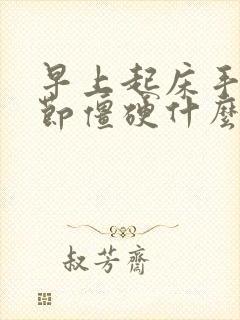 早上起床手
節僵硬什麼
叔芳齋